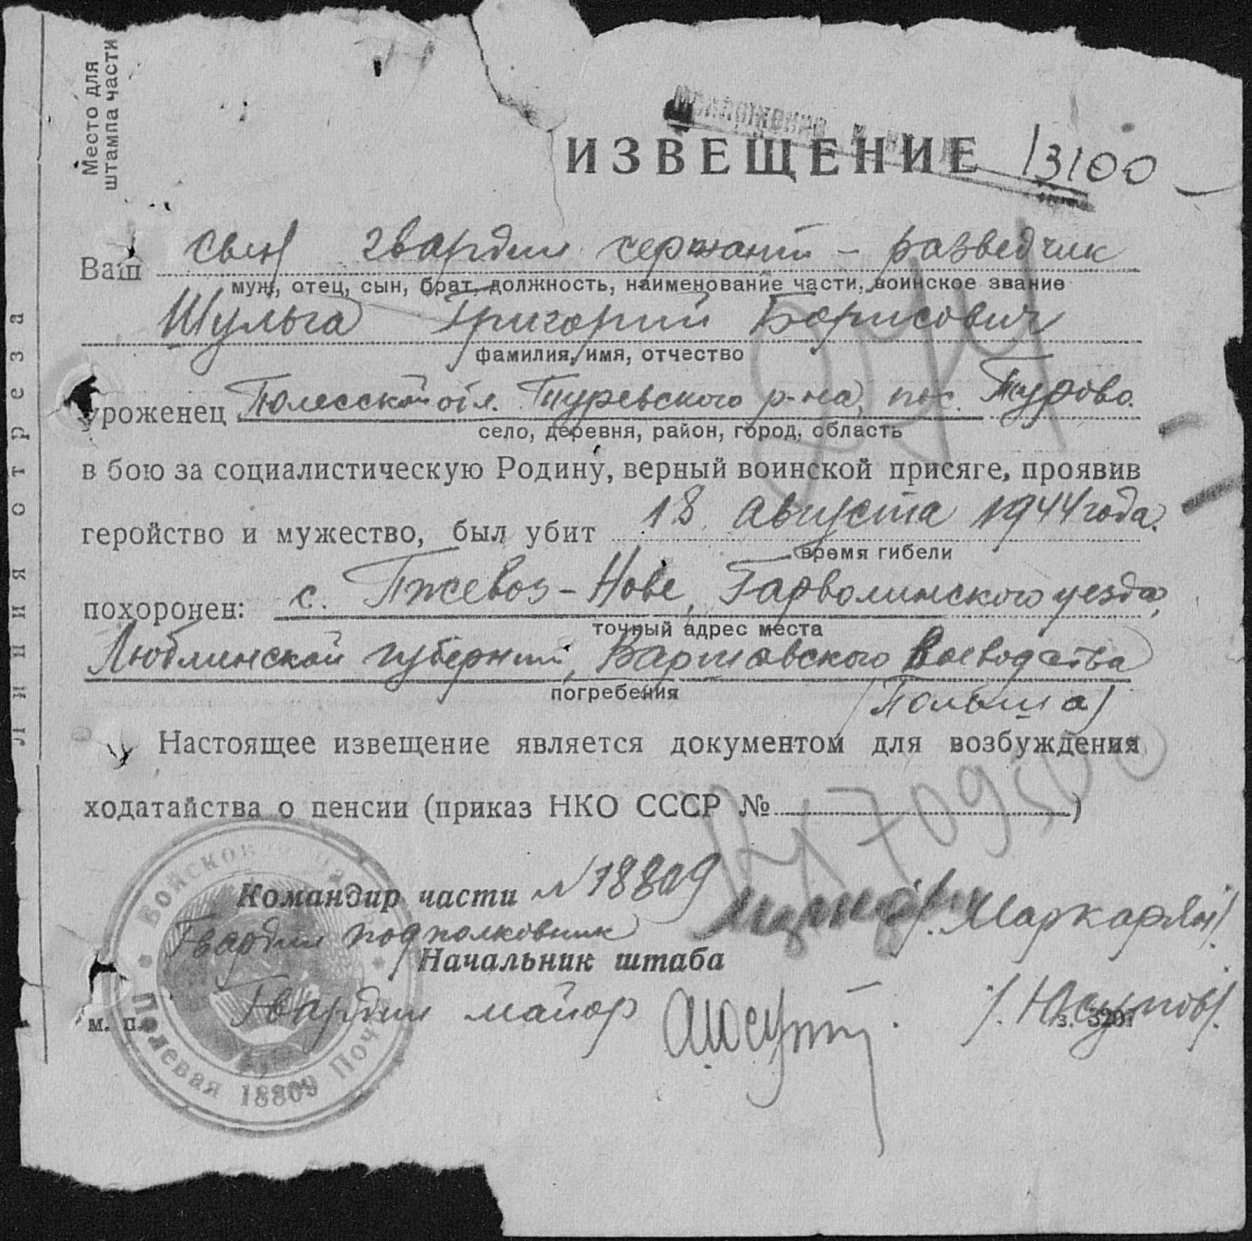 Место для
штампа части
линия отреза
ИЗВЕЩЕНИЕ 13100
Ваш сын гвардии сержант – разведчик
муж, отец, сын, брат, должность, наименование части, воинское звание
Шульга Григорий Борисович
фамилия, имя, отчество
уроженец Полесской обл. Туревского р-на, пос. Турово.
село, деревня, район, город, область
в бою за социалистическую Родину, верный воинской присяге, проявив
геройство и мужество, был убит 18 августа 1944 года.
время гибели
похоронен: с. Пжевоз-Нове, Гарволинского уезда,
точный адрес места
Люблинской губернии, Варшавского Воеводства
погребения
(Польша)
Настоящее извещение является документом для возбуждения
ходатайства о пенсии (приказ НКО СССР № )
Командир части N 18809
Гвардии подполковник /Маркарян/
Начальник штаба
Гвардии майор /Юсупов/
м. п.
з. 3201
Войсковая часть
Полевая 18809 Почта